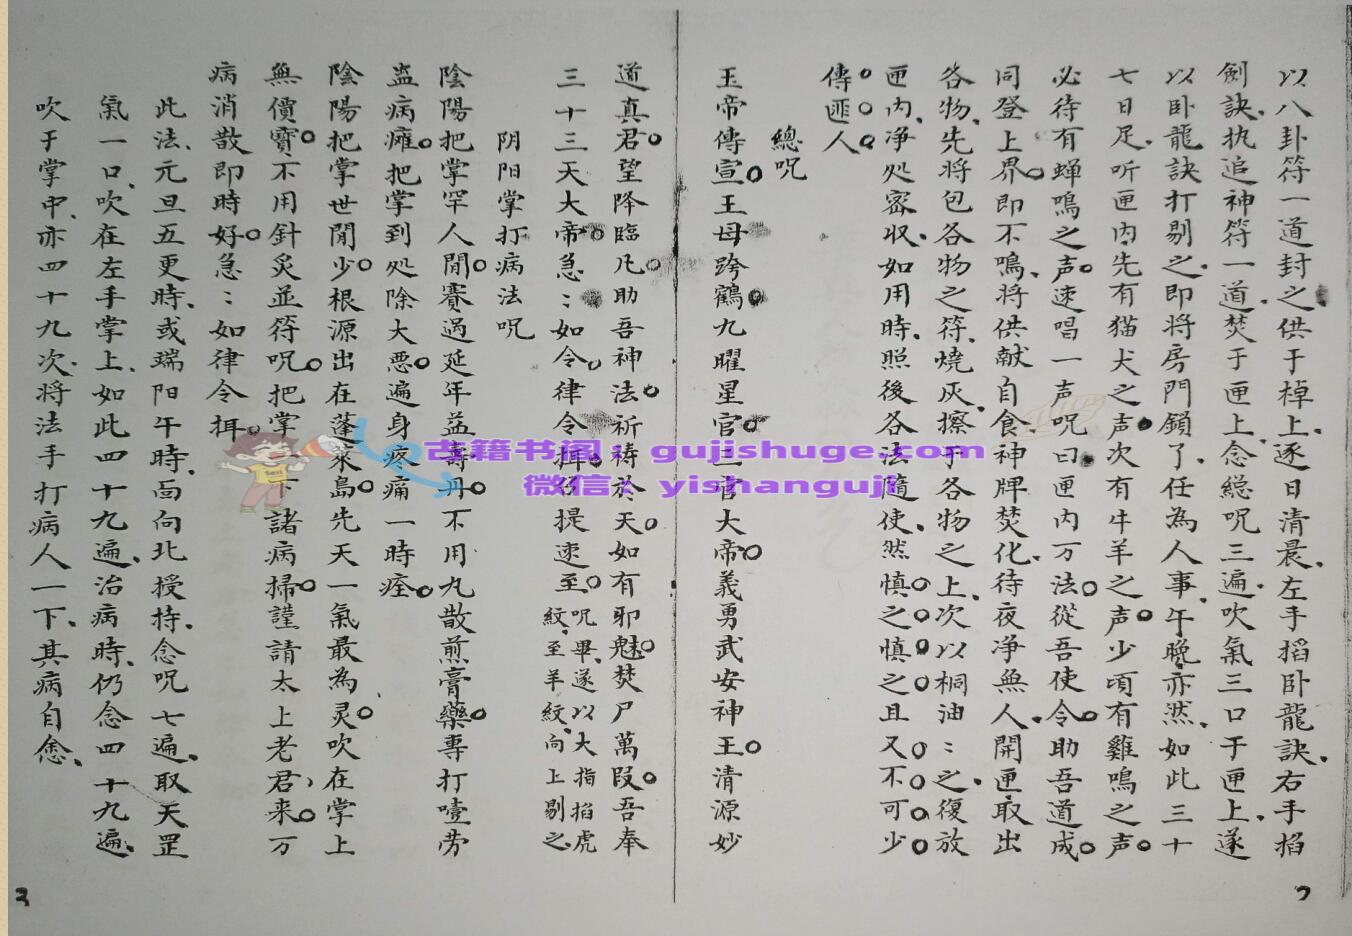 以八卦符一道封之供于棹上、逐日清晨、左手搯卧龍訣、右手搯
劍訣、执追神符一道、焚于匣上、念総咒三遍、吹氣三口于匣上、遂
以卧龍訣打剔之、即將房門鎖了、任為人事、午晚亦然、如此三十
七日足、听匣内、先有猫犬之声、次有牛羊之声、少頃有雞鳴之声。
必待有蝉鳴之声。速唱一声咒曰匣内万法。從吾使令。助吾道成。
同登上界。即不鳴、將供献自食神牌焚化、待夜净無人、開匣取出
各物、先將包各物之符、燒灰、擦于各物之上、次以桐油:之、復放
匣内、净処密収、如用時、照後各法隨使、然慎之慎之且又不可少
傳匪人
總咒
玉帝傳宣。王母跨鶴。九曜星官。三官大帝。義勇武安神王。清源妙
道真君。望降臨凡。助吾神法。祈祷於天。如有邪魅。焚尸萬段。吾奉
三十三天大帝。急:如令。律令揖。提速至。咒畢、遂以大指掐虎
紋、至羊紋、向上剔之
阴阳掌打病法咒
陰陽把掌罕人聞。賽過延年益壽丹。不用丸散煎膏藥。專打噎劳
盅病癱。把掌到処除大悪。遍身疼痛一時痊。
陰陽把掌世間少。根源出在蓬萊島。先天一氣最為灵。吹在掌上
無價寳。不用針炙並符呪。把掌下諸病掃。謹請太上老君来。万
病消散即時好。急:如律令揖。
此法、元旦五更時、或端阳午時、面向北授持、念咒七遍、取天罡
氣一口、吹在左手掌上、如此四十九遍、治病時、仍念四十九遍、
吹于掌中、亦四十九次、將法手打病人一下、其病自愈、
2
3
古籍书阁：gujishuge.com
微信：yishanguji